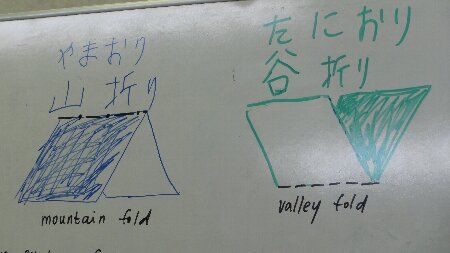 やまおり
山折り
mountain fold
たにおり
谷折り
valley fold